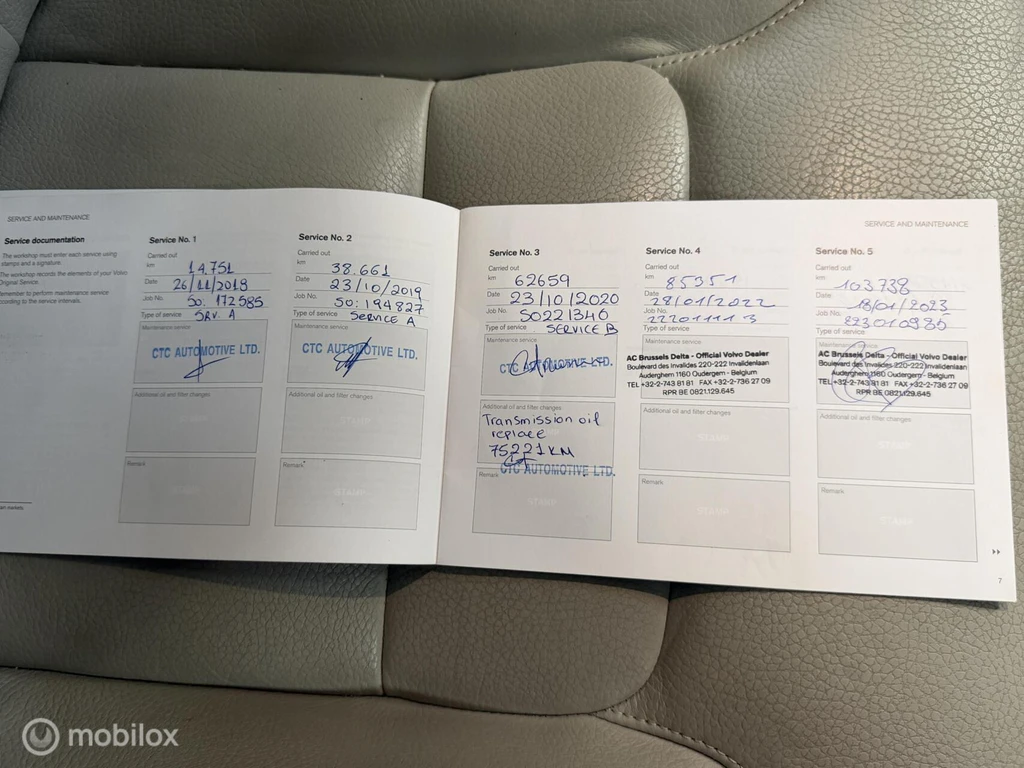 SERVICE AND MAINTENANCE
Service documentation
The workshop must enter each service using
stamps and a signature.
The workshop records the elements of your Volvo
Original Service.
Remember to perform maintenance service
according to the service intervals.
Service No. 1
Carried out
km 14.751
Date 26/11/2018
Job No. SO: 172585
Type of service SRV. A
Maintenance service
CTC AUTOMOTIVE LTD.
Additional oil and filter changes
STAMP
Remark
STAMP
Service No. 2
Carried out
km 38.661
Date 23/10/2019
Job No. SO: 194827
Type of service SERVICE A
Maintenance service
CTC AUTOMOTIVE LTD.
Additional oil and filter changes
STAMP
Remark
STAMP
SERVICE AND MAINTENANCE
Service No. 3
Carried out
km 62659
Date 23/10/2020
Job No. SO221346
Type of service SERVICE B
Maintenance service
CTC AUTOMOTIVE LTD.
Additional oil and filter changes
Transmission oil
replace
75221KM
CTC AUTOMOTIVE LTD.
Remark
STAMP
Service No. 4
Carried out
km 85351
Date 28/01/2022
Job No. 222011113
Type of service
Maintenance service
AC Brussels Delta - Official Volvo Dealer
Boulevard des Invalides 220-222 Invalidenlaan
Auderghem 1160 Oudergem - Belgium
TEL +32-2-743 81 81 FAX +32-2-736 27 09
RPR BE 0821.129.645
Additional oil and filter changes
STAMP
Remark
STAMP
Service No. 5
Carried out
km 103.738
Date 18/01/2023
Job No. 823010985
Type of service
Maintenance service
AC Brussels Delta - Official Volvo Dealer
Boulevard des Invalides 220-222 Invalidenlaan
Auderghem 1160 Oudergem - Belgium
TEL +32-2-743 81 81 FAX +32-2-736 27 09
RPR BE 0821.129.645
Additional oil and filter changes
STAMP
Remark
STAMP
7
mobilox